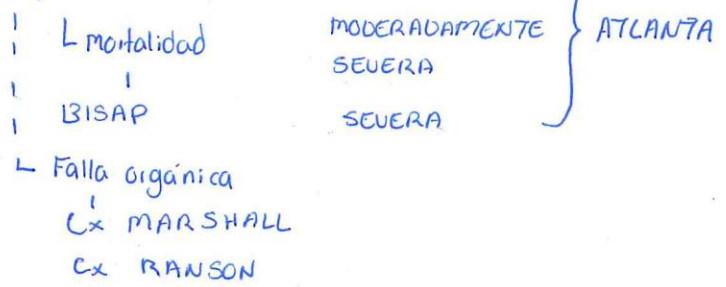 L mortalidad
BISAP
MODERADAMENTE
SEVERA
SEVERA
} ATLANTA
L Falla orgánica
Cx MARSHALL
Cx RANSON